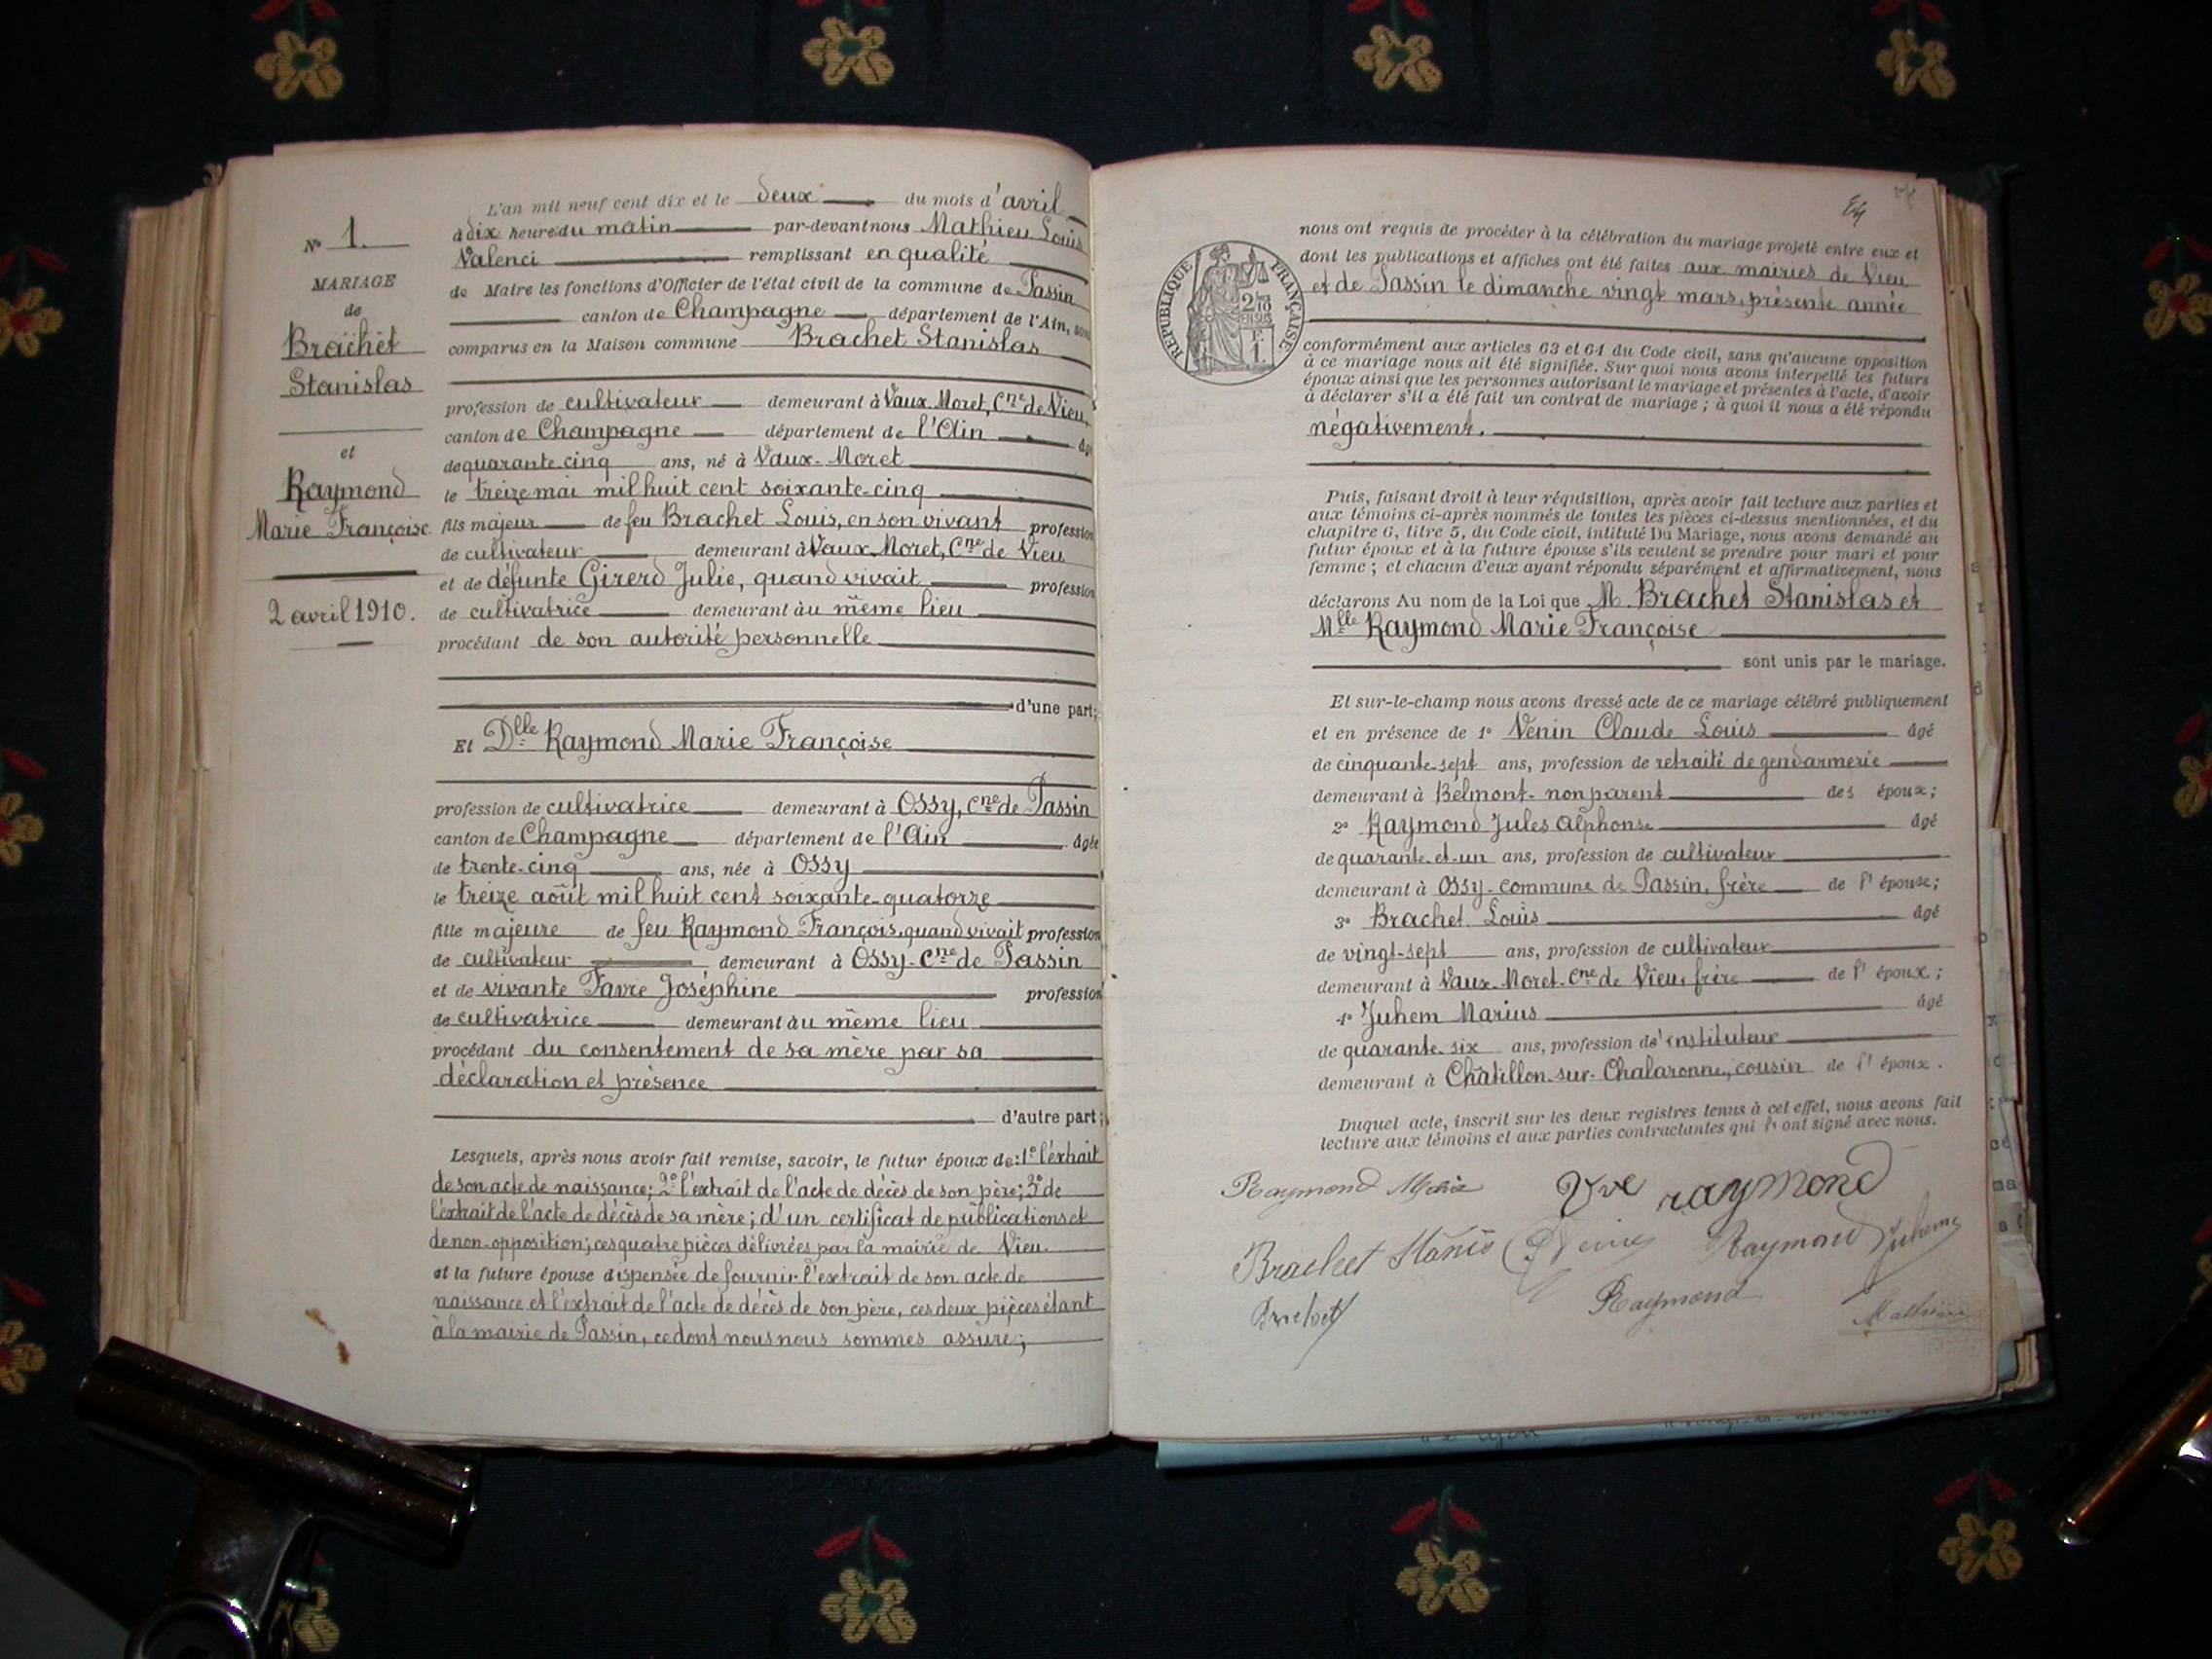 N° 1.
MARIAGE
de
Brachet
Stanislas
et
Raymond
Marie Françoise
2 avril 1910.
L'an mil neuf cent dix et le deux du mois d'avril
à dix heure du matin par-devant nous Mathieu Louis
Valenci remplissant en qualité
de Maire les fonctions d'Officier de l'état civil de la commune de Passin
canton de Champagne département de l'Ain, sont
comparus en la Maison commune Brachet Stanislas
profession de cultivateur demeurant à Vaux-Moret, Cne de Vieu,
canton de Champagne département de l'Ain âgé
de quarante-cinq ans, né à Vaux-Moret
le treize mai mil huit cent soixante-cinq
fils majeur de feu Brachet Louis, en son vivant profession
de cultivateur demeurant à Vaux-Moret, Cne de Vieu
et de défunte Girerd Julie, quand vivait profession
de cultivatrice demeurant au même lieu
procédant de son autorité personnelle
d'une part;
Et Dlle Raymond Marie Françoise
profession de cultivatrice demeurant à Ossy, Cne de Passin
canton de Champagne département de l'Ain âgée
de trente-cinq ans, née à Ossy
le treize août mil huit cent soixante-quatorze
fille majeure de feu Raymond François, quand vivait profession
de cultivateur demeurant à Ossy-Cne de Passin
et de vivante Favre Joséphine profession
de cultivatrice demeurant au même lieu
procédant du consentement de sa mère par sa
déclaration et présence
d'autre part;
Lesquels, après nous avoir fait remise, savoir, le futur époux de: 1° l'extrait
de son acte de naissance; 2° l'extrait de l'acte de décès de son père; 3° de
l'extrait de l'acte de décès de sa mère; d'un certificat de publications et
de non-opposition; ces quatre pièces délivrées par la mairie de Vieu.
et la future épouse dispensée de fournir l'extrait de son acte de
naissance et l'extrait de l'acte de décès de son père, ces deux pièces étant
à la mairie de Passin, ce dont nous nous sommes assuré;
RÉPUBLIQUE FRANÇAISE
nous ont requis de procéder à la célébration du mariage projeté entre eux et
dont les publications et affiches ont été faites aux mairies de Vieu
et de Passin le dimanche vingt mars, présente année
conformément aux articles 63 et 64 du Code civil, sans qu'aucune opposition
à ce mariage nous ait été signifiée. Sur quoi nous avons interpellé les futurs
époux ainsi que les personnes autorisant le mariage et présentes à l'acte, d'avoir
à déclarer s'il a été fait un contrat de mariage; à quoi il nous a été répondu
négativement.
Puis, faisant droit à leur réquisition, après avoir fait lecture aux parties et
aux témoins ci-après nommés de toutes les pièces ci-dessus mentionnées, et du
chapitre 6, titre 5, du Code civil, intitulé Du Mariage, nous avons demandé au
futur époux et à la future épouse s'ils veulent se prendre pour mari et pour
femme; et chacun d'eux ayant répondu séparément et affirmativement, nous
déclarons Au nom de la Loi que M. Brachet Stanislas et
Mlle Raymond Marie Françoise
sont unis par le mariage.
Et sur-le-champ nous avons dressé acte de ce mariage célébré publiquement
et en présence de 1° Venin Claude Louis âgé
de cinquante-sept ans, profession de retraité de gendarmerie
demeurant à Belmont-non parent des époux;
2° Raymond Jules Alphonse âgé
de quarante-et-un ans, profession de cultivateur
demeurant à Ossy-commune de Passin, frère de l'épouse;
3° Brachet Louis âgé
de vingt-sept ans, profession de cultivateur
demeurant à Vaux-Moret-Cne de Vieu, frère de l'époux;
4° Juhem Marius âgé
de quarante-six ans, profession d'instituteur
demeurant à Châtillon-sur-Chalaronne, cousin de l'époux.
Duquel acte, inscrit sur les deux registres tenus à cet effet, nous avons fait
lecture aux témoins et aux parties contractantes qui ont signé avec nous.
Raymond Vve raymond
Brachet Raymond Juhem
Brachet Raymond Mathieu